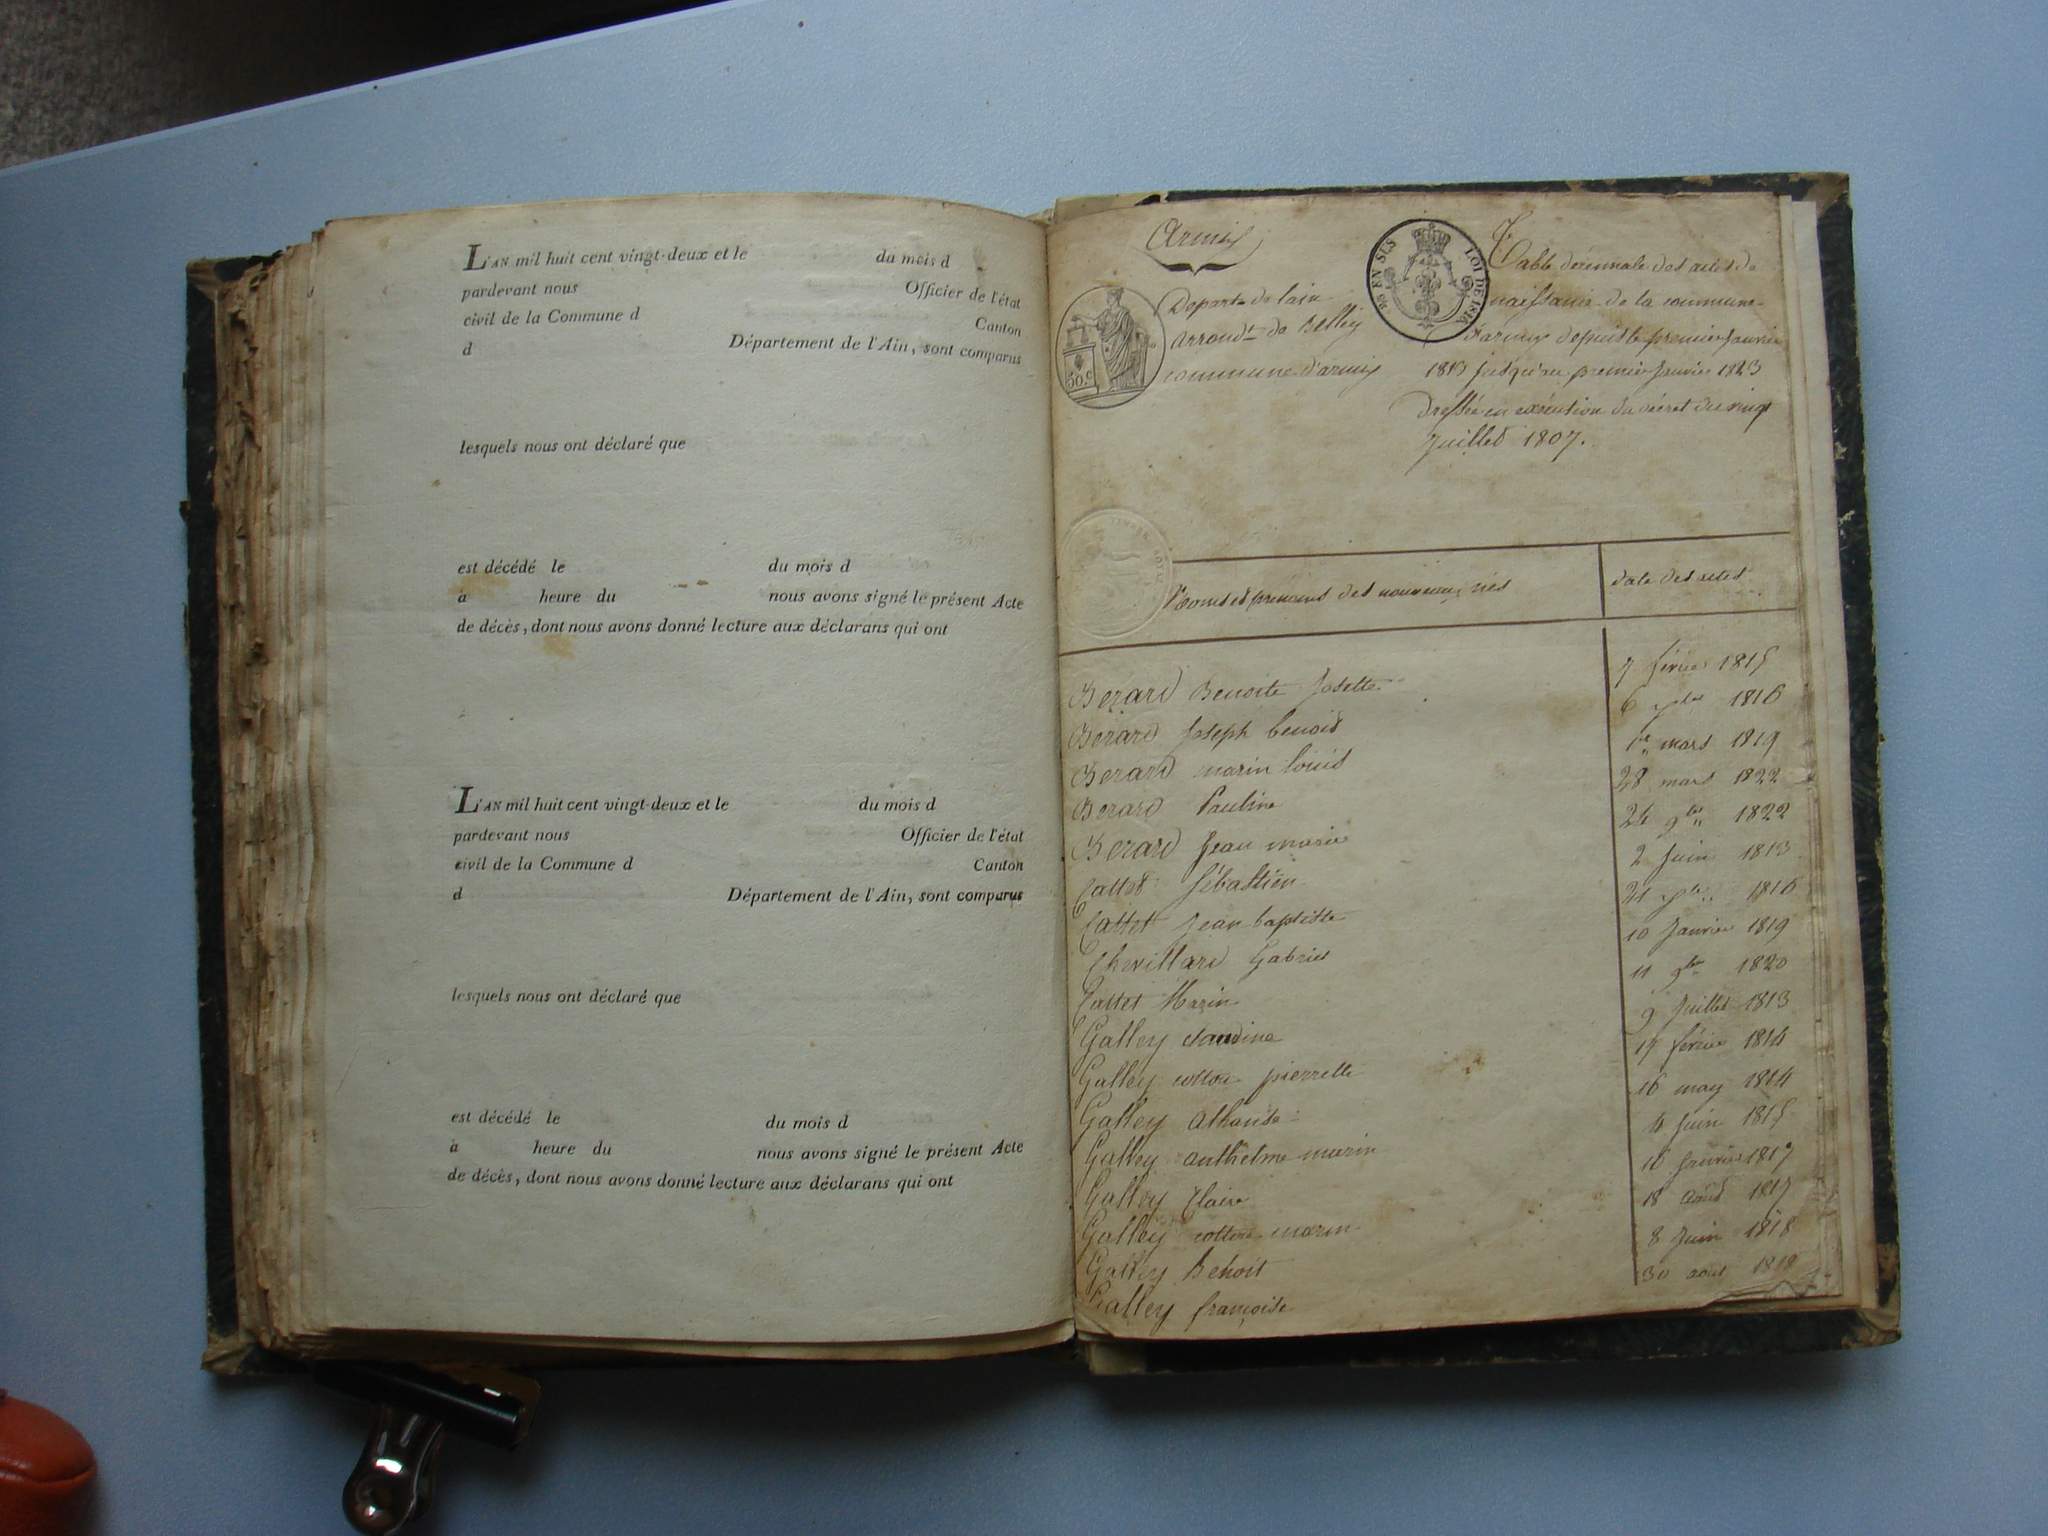 L'AN mil huit cent vingt-deux et le du mois d
pardevant nous Officier de l'état
civil de la Commune d Canton
d Département de l'Ain, sont comparus
lesquels nous ont déclaré que
est décédé le du mois d
à heure du nous avons signé le présent Acte
de décès, dont nous avons donné lecture aux déclarans qui ont
L'AN mil huit cent vingt-deux et le du mois d
pardevant nous Officier de l'état
civil de la Commune d Canton
d Département de l'Ain, sont comparus
lesquels nous ont déclaré que
est décédé le du mois d
à heure du nous avons signé le présent Acte
de décès, dont nous avons donné lecture aux déclarans qui ont
Armix
Depart de lain
arrondt de Belley
commune d'armix
50.c
EN SUS
LOI DE 1816
Table décennale des actes de
naissance de la commune
d'armix depuis le premier janvier
1813 jusqu'au premier janvier 1823
Dressée en exécution du décret du vingt
juillet 1807.
Noms et prénoms des nouveaux nés date des actes
Berard Benoite Josette 7 février 1815
Berard Joseph benoit 6 1816
Berard marin louis 1er mars 1819
Berard Pauline 28 mars 1822
Berard Jean marie 24 9bre 1822
Cattet Sébastien 2 Juin 1813
Cattet Jean baptiste 21 1816
Chevillard Gabriel 10 Janvier 1819
Cattet Marin 11 9bre 1820
Galley claudine 9 Juillet 1813
Galley cotton pierrette 17 février 1814
Galley 16 may 1814
Galley anthelme marin 4 Juin 1815
Galley Claire 16 janvier 1817
Galley cotton marin 18 août 1817
Galley Benoit 8 Juin 1818
Galley françoise 30 aout 1818